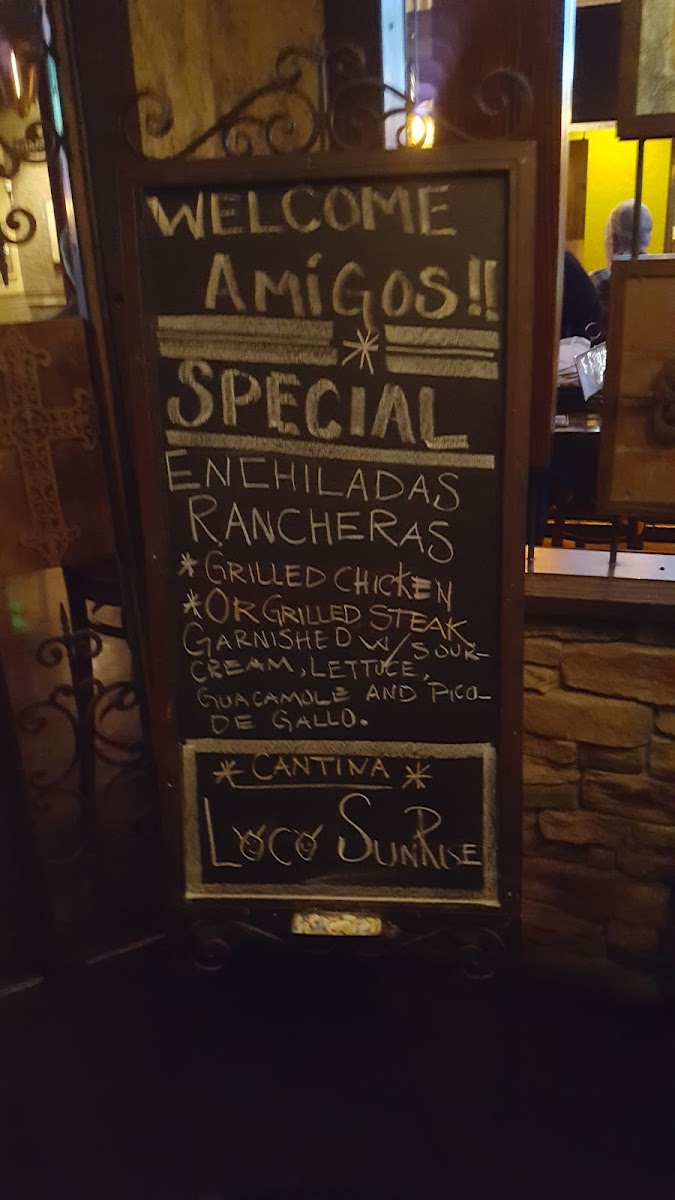 WELCOME
AMÍGOS!!
*
SPECIAL
ENCHILADAS
RANCHERAS
* GRILLED CHICKEN
* OR GRILLED STEAK
GARNISHED W/ SOUR-
CREAM, LETTUCE,
GUACAMOLE AND PICO-
DE GALLO.
* CANTINA *
LOCO SUNRISE